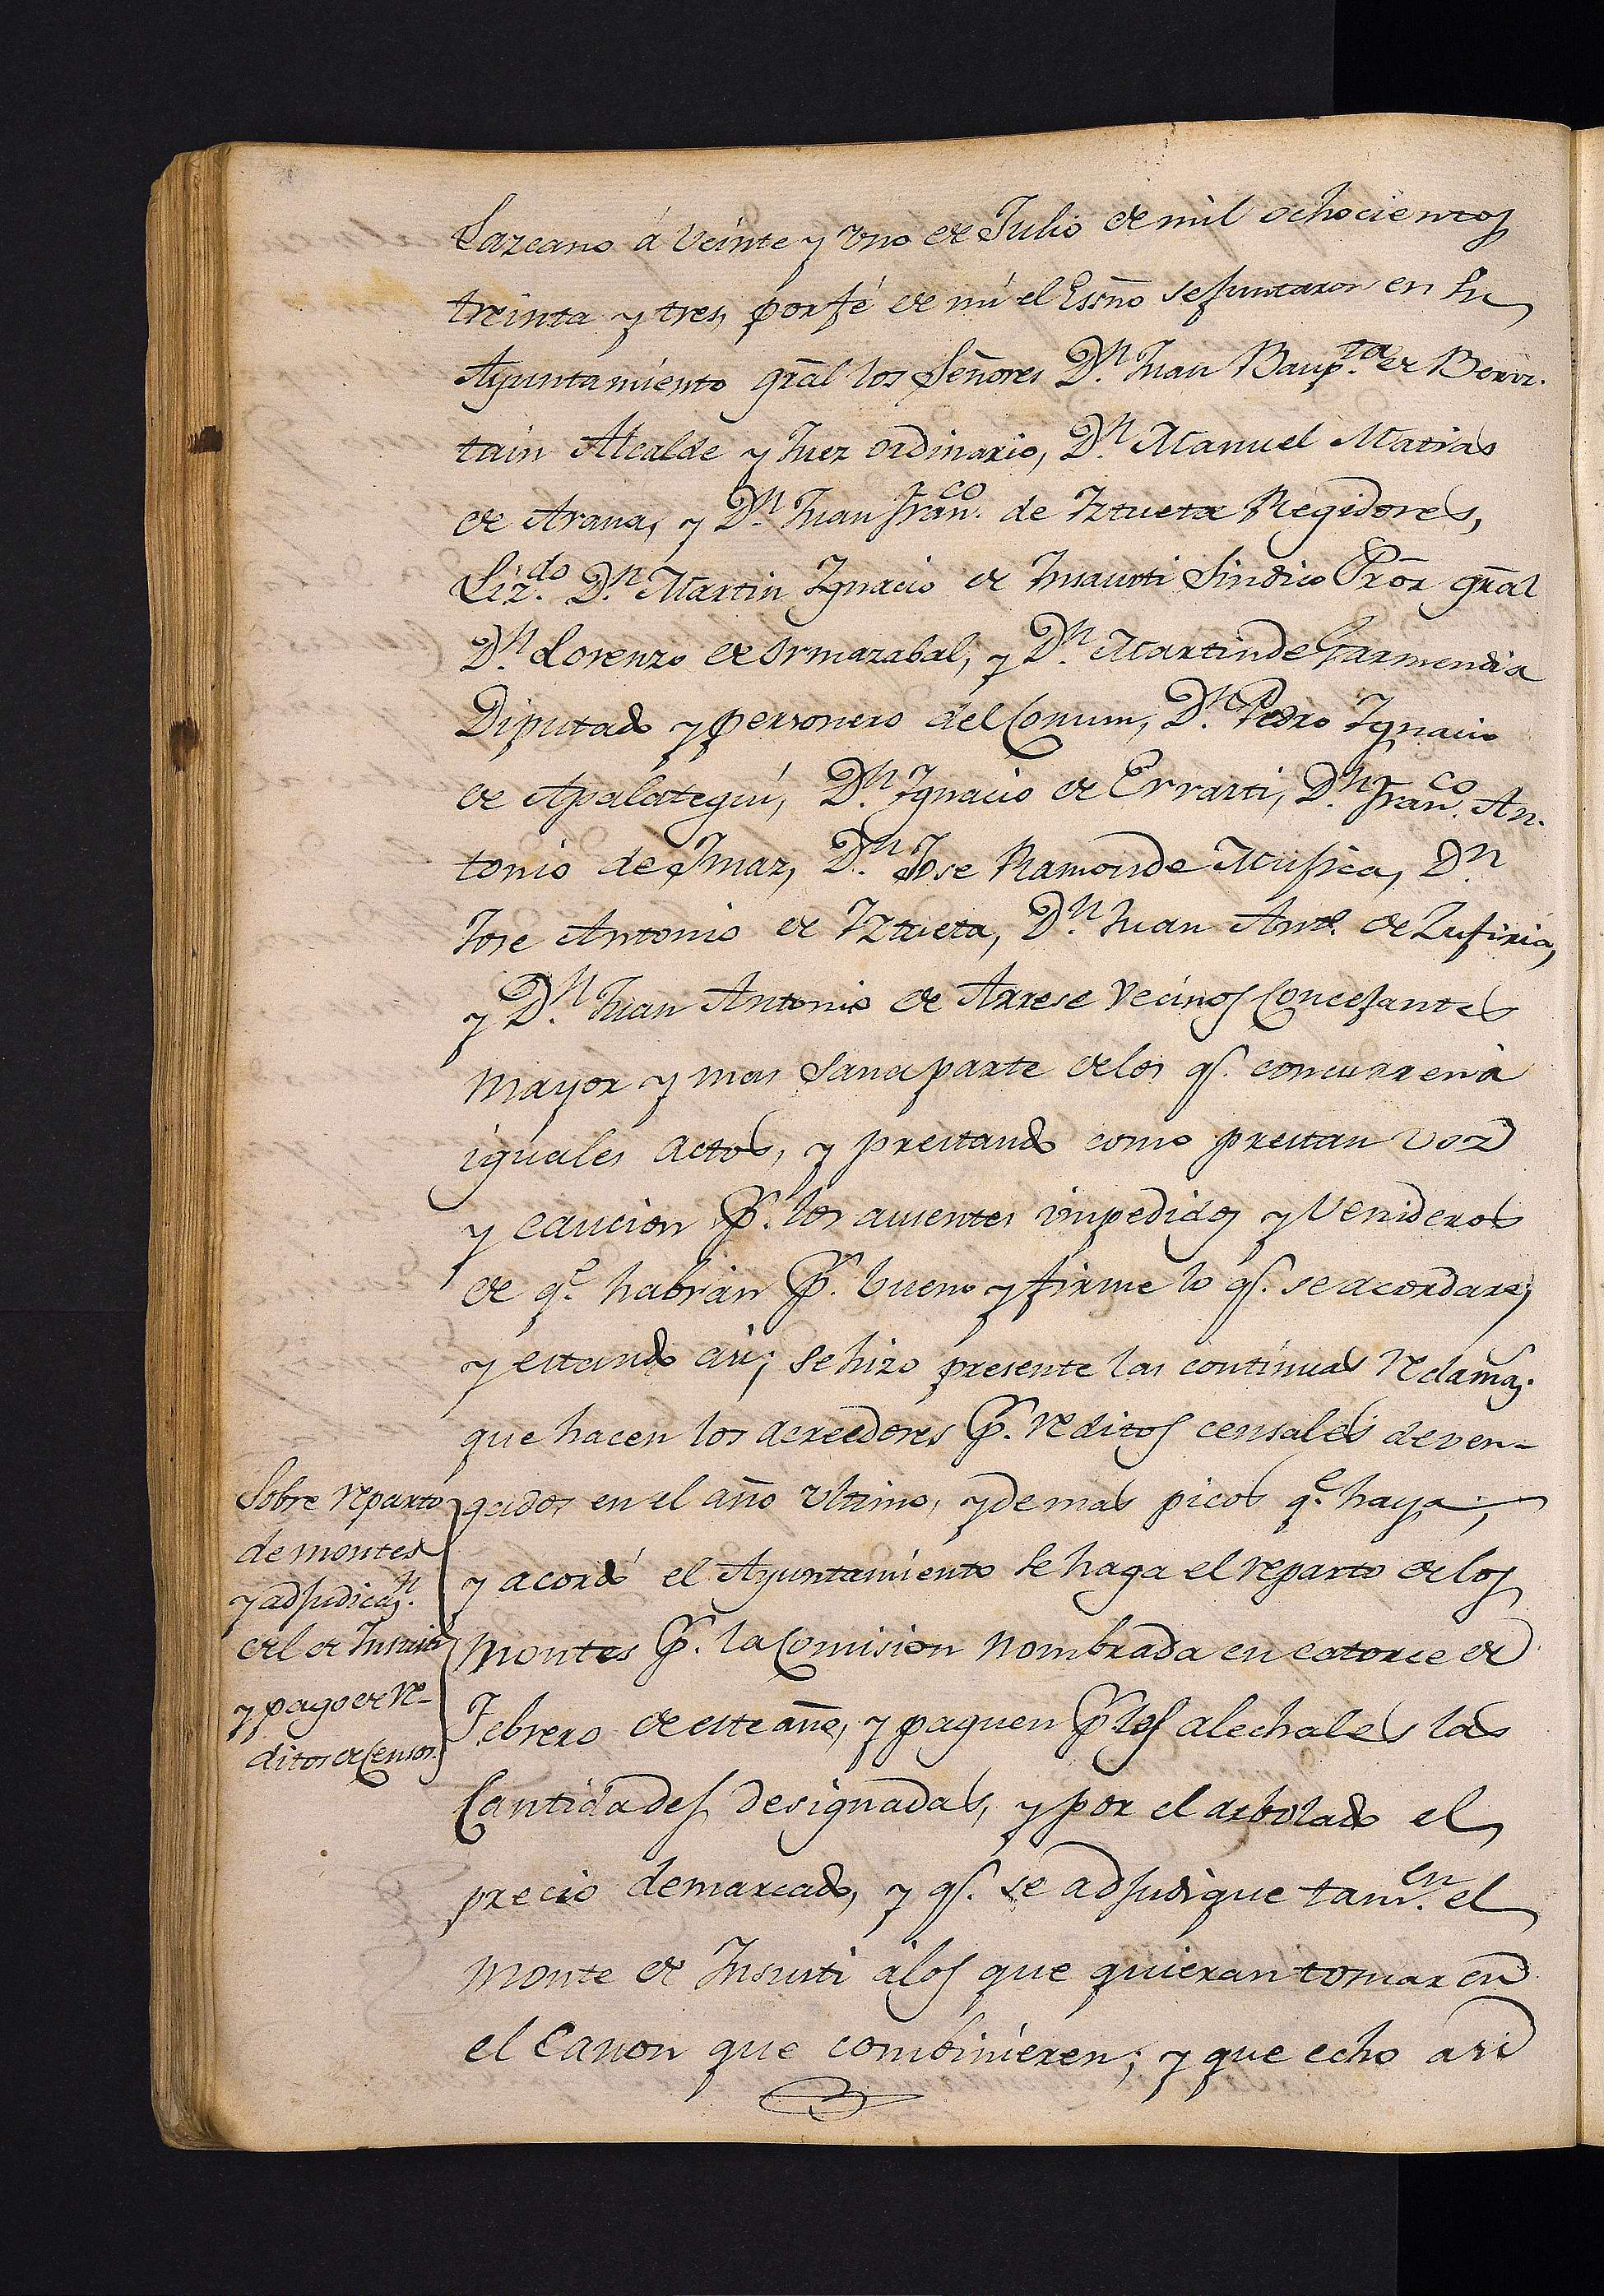 Lazcano á Veinte y uno de Julio de mil ochocientos
treinta y tres, por fé de mi el Essño se juntaron en su
Ayuntamiento gr̃al los Señores Dn. Juan Baupta. de Beriz-
tain Alcalde y Juez ordinario, Dn. Manuel Matias
de Arana, y Dn. Juan Franco. de Iztueta Regidores,
Lizdo. Dn. Martin Ignacio de Insausti Sindico Prõr gr̃al
Dn. Lorenzo de Ormazabal, y Dn. Martin de Garmendia
Diputado y personero del Comun, Dn. Pedro Ignacio
de Apalategui, Dn. Ignacio de Errasti, Dn. Franco. An-
tonio de Imaz, Dn. Jose Ramon de Mujica, Dn.
Jose Antonio de Iztueta, Dn. Juan Anto. de Zufiria,
y Dn. Juan Antonio de Arrese Vecinos Concejantes
mayor y mas sana parte de los qs. concurren à
iguales actos, y prestando como prestan voz
y caucion p. los ausentes impedidos y Venideros
de qe. habrán p. bueno y firme lo qs. se acordare;
y estando asi; se hizo presente las continuas reclamas.
que hacen los acreedores p. reditos censales deven-
Sobre reparto
de montes
y adjudican.
del de Insusti
y pago de re-
ditos de Censos.
gados en el año ultimo, y demas picos qe. haya;
y acordó el Ayuntamiento se haga el reparto de los
montes p. la Comision nombrada en catorce de
Febrero de este año, y paguen p. los alechales las
Cantidades designadas, y por el arbolado el
precio demarcado, y qs. se adjudique tamen. el
monte de Insusti à los que quieran tomar en
el Canon que combinieren; y que echo asi